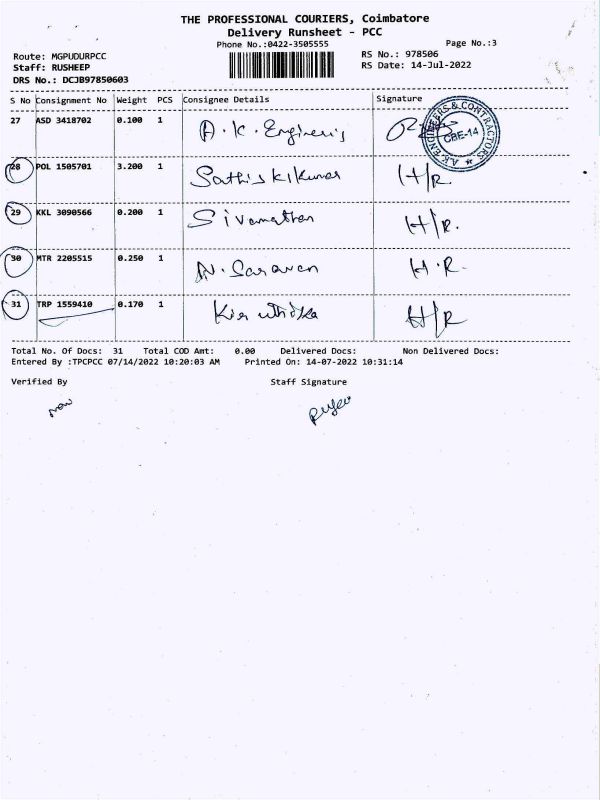 THE PROFESSIONAL COURIERS, Coimbatore
Delivery Runsheet - PCC
Phone No.:0422-3505555
Page No.:3
Route: MGPUDURPCC
RS No.: 978506
Staff: RUSHEEP
RS Date: 14-Jul-2022
DRS No.: DCJB97850603
S No Consignment No Weight PCS Consignee Details Signature
27 ASD 3418702 0.100 1 A.K.Engineris
A.K. ENGINEERS & CONTRACTORS CBE-14
28 POL 1505701 3.200 1 Sathiskikumar H/R
29 KKL 3090566 0.200 1 Sivamathan H/R.
30 MTR 2205515 0.250 1 N.Saravan H.R.
31 TRP 1559410 0.170 1 H/R
Total No. Of Docs: 31 Total COD Amt: 0.00 Delivered Docs: Non Delivered Docs:
Entered By :TPCPCC 07/14/2022 10:20:03 AM Printed On: 14-07-2022 10:31:14
Verified By Staff Signature